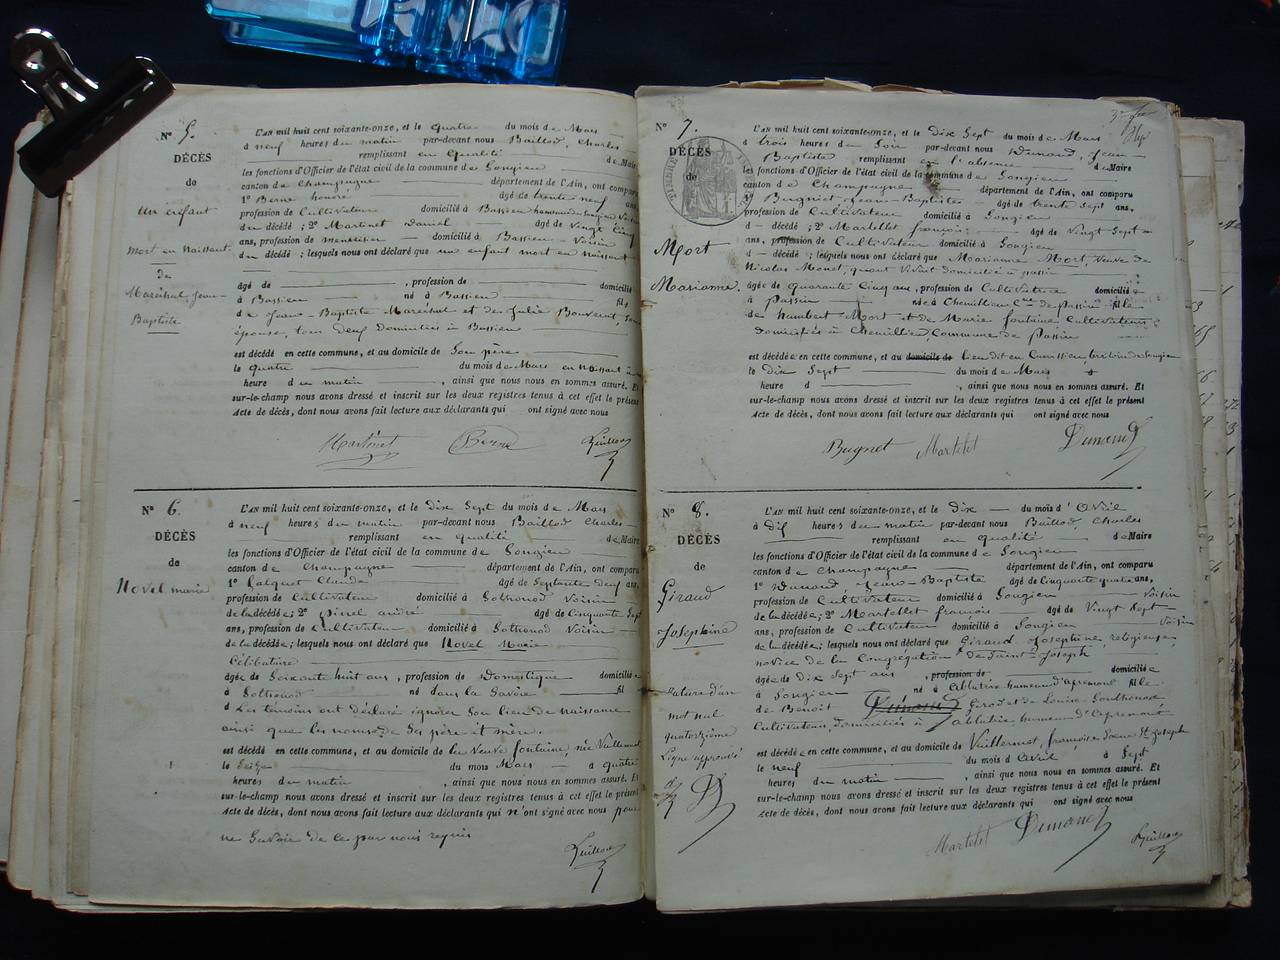 N° 5.
DÉCÈS
de
un enfant
mort en Naissant
de
Maréchal Jean
Baptiste
L'AN mil huit cent soixante-onze, et le quatre du mois de Mars
à neuf heures du matin par-devant nous Baillod, Charles
remplissant en qualité de Maire
les fonctions d'Officier de l'état civil de la commune de Songieu
canton de Champagne département de l'Ain, ont comparu
1° Berne honoré âgé de trente neuf ans,
profession de Cultivateur domicilié à Bassieu
du décédé; 2° Martinet Daniel âgé de Vingt Cinq
ans, profession de menuisier domicilié à Bassieu Voisin
du décédé; lesquels nous ont déclaré que un enfant mort en naissant
âgé de , profession de domicilié
à Bassieu né à Bassieu fils
de Jean Baptiste Maréchal et de Julie Bouvent, son
épouse, tous deux domiciliés à Bassieu
est décédé en cette commune, et au domicile de Son père
le quatre du mois de Mars en Naissant
heure du matin , ainsi que nous nous en sommes assuré. Et
sur-le-champ nous avons dressé et inscrit sur les deux registres tenus à cet effet le présent
Acte de décès, dont nous avons fait lecture aux déclarants qui ont signé avec nous
Martinet Berne
N° 6.
DÉCÈS
de
Novel marie
L'AN mil huit cent soixante-onze, et le dix Sept du mois de Mars
à neuf heures du matin par-devant nous Baillod Charles
remplissant en qualité de Maire
les fonctions d'Officier de l'état civil de la commune de Songieu
canton de Champagne département de l'Ain, ont comparu
1° Claude âgé de Septante deux ans,
profession de Cultivateur domicilié à Sothonod Voisin
de la décédée; 2° pinel andré âgé de Cinquante Sept
ans, profession de Cultivateur domicilié à Sothonod Voisin
de la décédée; lesquels nous ont déclaré que Novel Marie
Célibataire
âgée de Soixante huit ans, profession de Domestique domiciliée
à Sothonod née dans la Savoie fil
d Les témoins ont déclaré ignorer Son lieu de naissance
ainsi que les noms de Ses père et mère.
est décédée en cette commune, et au domicile de la Veuve fontaine, née Vuillermet
le Seize du mois Mars à quatre
heures du matin , ainsi que nous nous en sommes assuré. Et
sur-le-champ nous avons dressé et inscrit sur les deux registres tenus à cet effet le présent
Acte de décès, dont nous avons fait lecture aux déclarants qui n'ont signé avec nous pour
ne Savoir de ce par nous requis
N° 7.
DÉCÈS
de
Mort
Marianne.
L'AN mil huit cent soixante-onze, et le dix Sept du mois de Mars
à trois heures du Soir par-devant nous Dunand, Jean-
Baptiste remplissant en l'absence de Maire
les fonctions d'Officier de l'état civil de la commune de Songieu
canton de Champagne département de l'Ain, ont comparu
1° Bugniet Jean-Baptiste âgé de trente sept ans,
profession de Cultivateur domicilié à Songieu
d décédé; 2° Martellet françois âgé de Vingt Sept
ans, profession de Cultivateur domicilié à Songieu
d décédé; lesquels nous ont déclaré que Marianne Mort, Veuve de
Nicolas Monet, quant Vivait domiciliée à passin
âgée de quarante Cinq ans, profession de Cultivatrice domiciliée
à Passin née à Chemillieu Cne de passin fille
de humbert Mort et de Marie fontaine Cultivateurs
domiciliés à Chemillieu, Commune de Passin
est décédée en cette commune, et au domicile de lieu dit en
le dix Sept du mois de Mars
heure d , ainsi que nous nous en sommes assuré. Et
sur-le-champ nous avons dressé et inscrit sur les deux registres tenus à cet effet le présent
Acte de décès, dont nous avons fait lecture aux déclarants qui ont signé avec nous
Bugnet Martelet Dunand
N° 8.
DÉCÈS
de
Giraud
Josephine
Rature d'un
mot nul
quatorzième
ligne approuvé
L'AN mil huit cent soixante-onze, et le dix du mois d'Avril
à dix heures du matin par-devant nous Baillod, Charles
remplissant en qualité de Maire
les fonctions d'Officier de l'état civil de la commune de Songieu
canton de Champagne département de l'Ain, ont comparu
1° Dunand, Jean-Baptiste âgé de Cinquante quatre ans,
profession de Cultivateur domicilié à Songieu Voisin
de la décédée; 2° Martellet françois âgé de Vingt Sept
ans, profession de Cultivateur domicilié à Songieu Voisin
de la décédée; lesquels nous ont déclaré que Giraud Josephine, religieuse
novice de la Congrégation de Saint-Joseph
âgée de dix Sept ans , profession de domiciliée
à Songieu né à fille
de Benoit Girod et de Louise
Cultivateurs, domiciliés à
est décédée en cette commune, et au domicile de Vuillermet, françoise Soeur St Joseph
le neuf du mois d'Avril à Sept
heures du matin , ainsi que nous nous en sommes assuré. Et
sur-le-champ nous avons dressé et inscrit sur les deux registres tenus à cet effet le présent
Acte de décès, dont nous avons fait lecture aux déclarants qui ont signé avec nous
Martelet Dunand